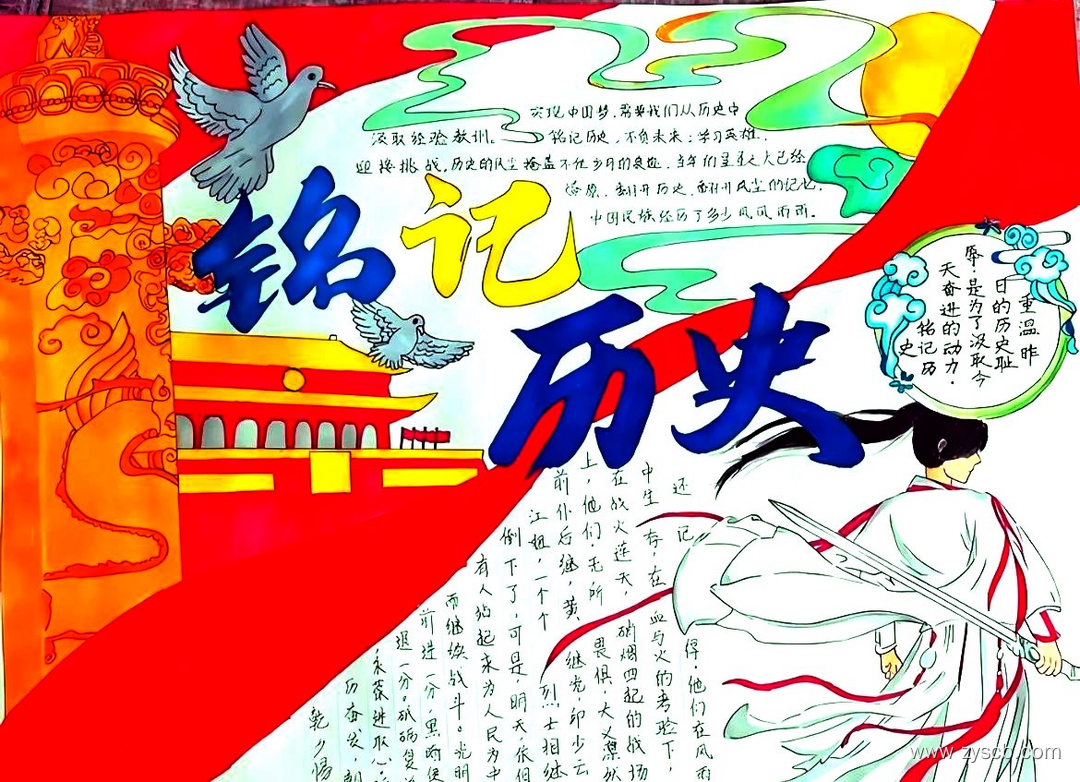 铭记
历史
实现中国梦,需要我们从历史中
汲取经验教训。 铭记历史,不负未来;学习英雄,
迎接挑战,历史的风尘掩盖不住岁月的痕迹,当年的星星之火已经
燎原,翻开历史,翻开风尘的记忆,
中国民族经历了多少风风雨雨。
重温昨
日的历史耻
辱,是为了汲取今
天奋进的动力。
铭记历
史
还记 俘,他们在风雨
中生存,在血与火的考验下,
在战火连天,硝烟四起的战场
上,他们无所畏惧,大义凛然
前仆后继,黄继光,邱少云
江姐,一个个烈士相继
倒下了,可是明天依旧
有人站起来为人民为中
而继续战斗。光明
前进一分,黑暗便
退一分,砥砺复
永葆进取心
历奋发,朝
乾夕惕
www.zyscb.com